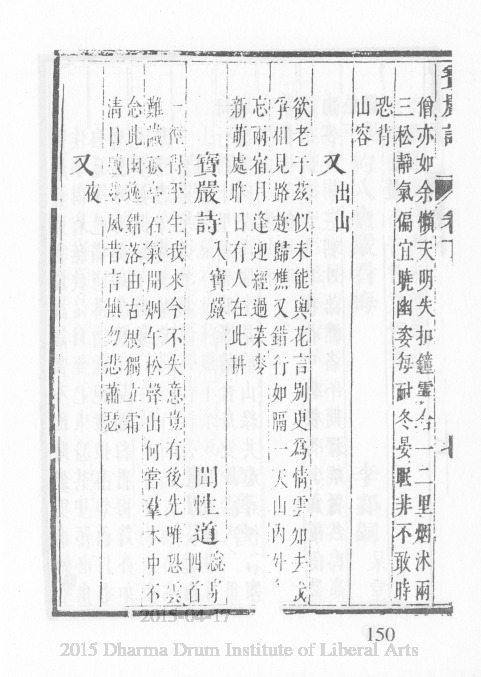 寶嚴詩 卷下
僧亦如余懶天明失扣鐘雲台一二里烟沐兩
三松靜氣偏宜曉幽姿每耐冬晏眠非不敢時
恐背
山容
又 出山
欲老于茲似未能與花言别更為情雲知去
爭相見路趂歸樵又錯行如隔一天山內外
忘兩宿月逢迎經過菜麥
新萌處昨日有人在此耕
寶嚴詩 入寶嚴 聞性道 四首
一徑得平生我來今不失意豈有後先唯恐雲
難識 石氣閒烟午松聲出何常羣木中不
念此幽逸錯落由古根獨立霜
清日 風昔言慎勿悲蕭瑟
又 夜
150
2015-04-17
2015 Dharma Drum Institute of Liberal Arts